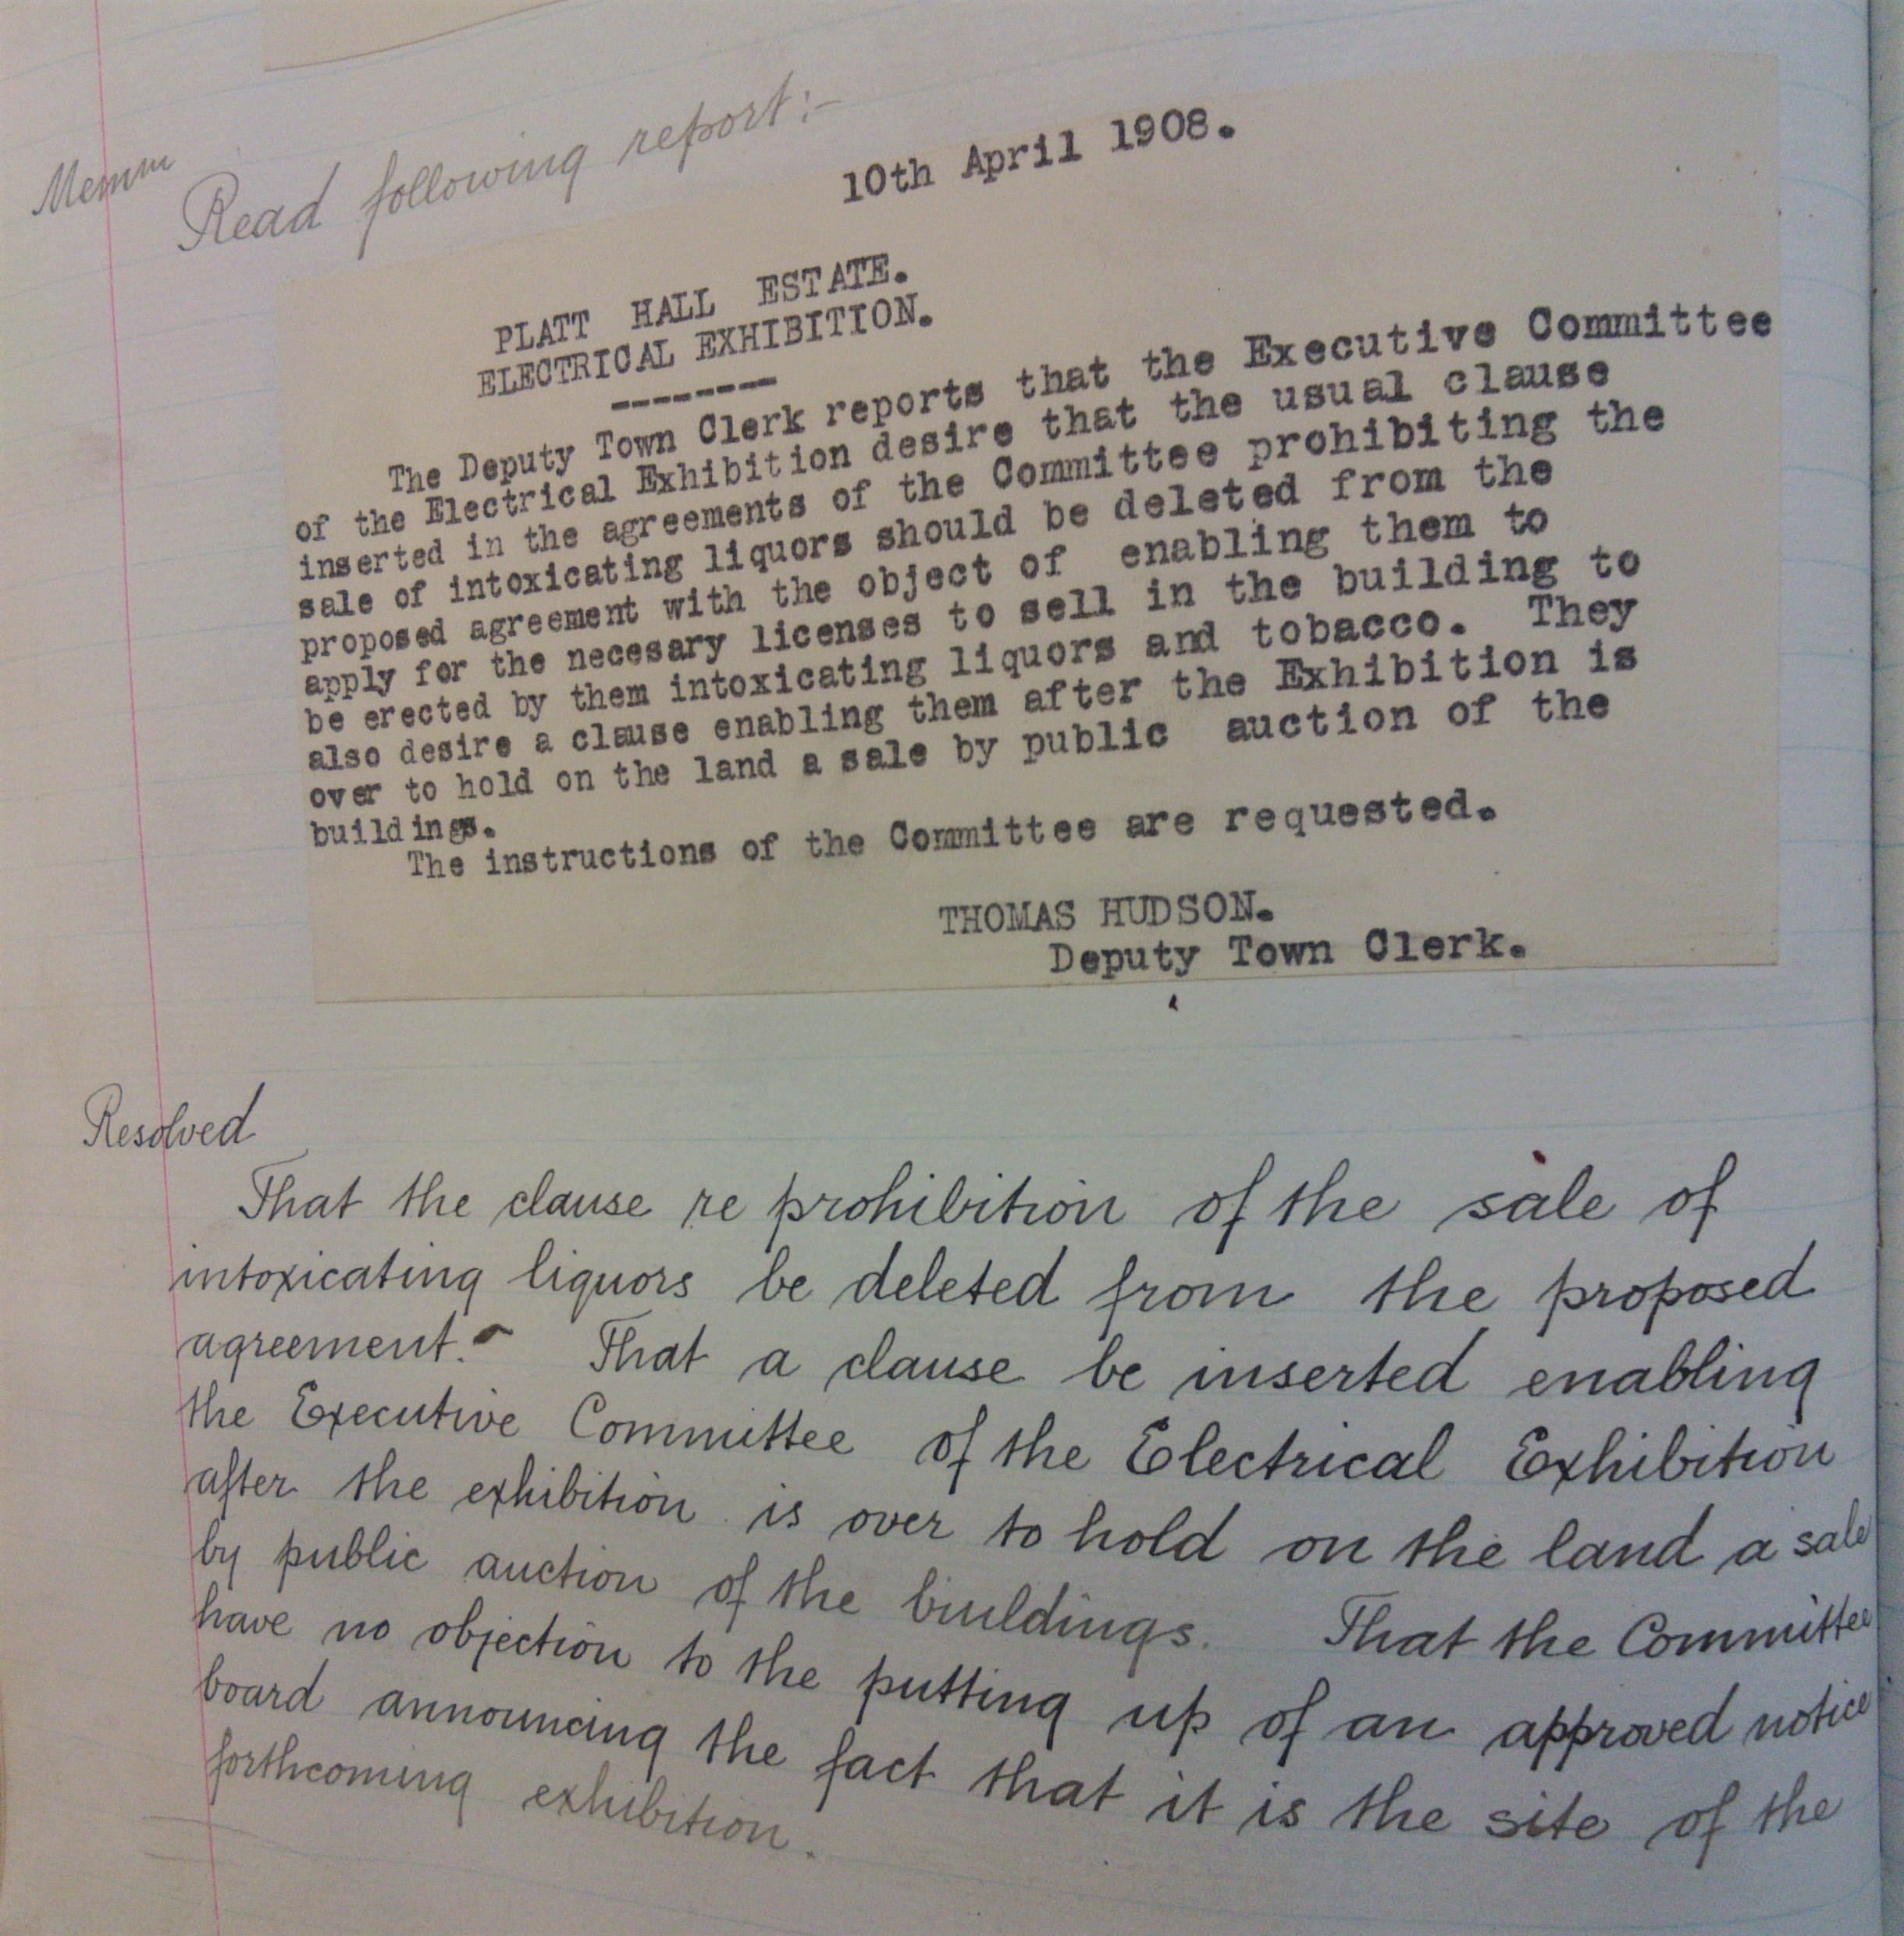 Memm
Read following report:-
10th April 1908.
PLATT HALL ESTATE.
ELECTRICAL EXHIBITION.
--------
The Deputy Town Clerk reports that the Executive Committee
of the Electrical Exhibition desire that the usual clause
inserted in the agreements of the Committee prohibiting the
sale of intoxicating liquors should be deleted from the
proposed agreement with the object of enabling them to
apply for the necesary licenses to sell in the building to
be erected by them intoxicating liquors and tobacco. They
also desire a clause enabling them after the Exhibition is
over to hold on the land a sale by public auction of the
buildings.
The instructions of the Committee are requested.
THOMAS HUDSON.
Deputy Town Clerk.
Resolved
That the clause re prohibition of the sale of
intoxicating liquors be deleted from the proposed
agreement. That a clause be inserted enabling
the Executive Committee of the Electrical Exhibition
after the exhibition is over to hold on the land a sale
by public auction of the buildings. That the Committee
have no objection to the putting up of an approved notice
board announcing the fact that it is the site of the
forthcoming exhibition.